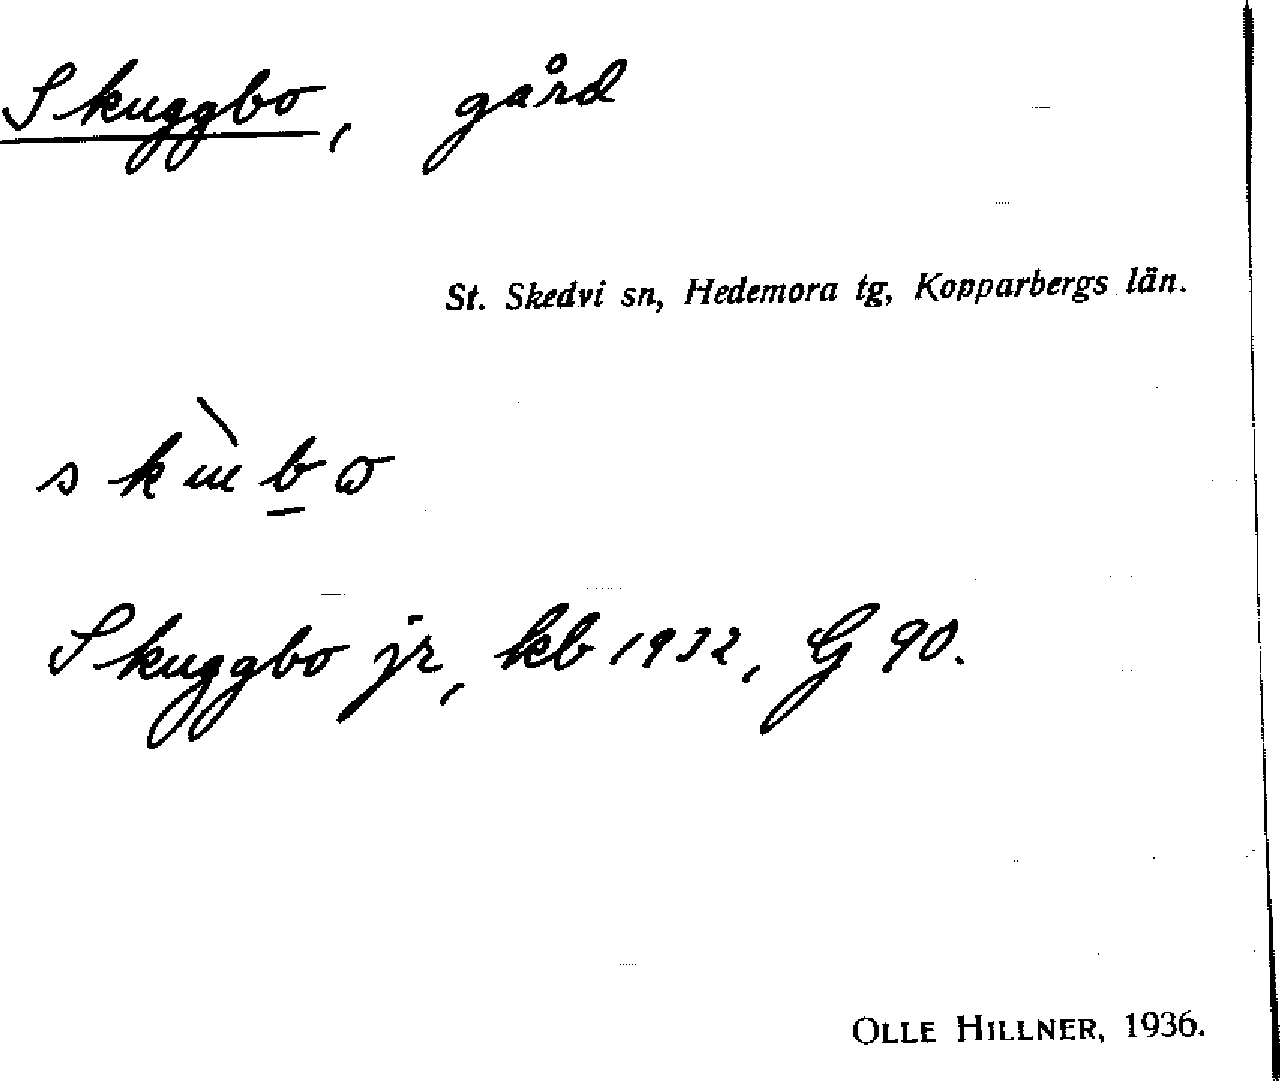 Skuggbo, gård
St. Skedvi sn, Hedemora tg, Kopparbergs län.
Skuggbo jr, kb 1932, G 90.
OLLE HILLNER, 1936.